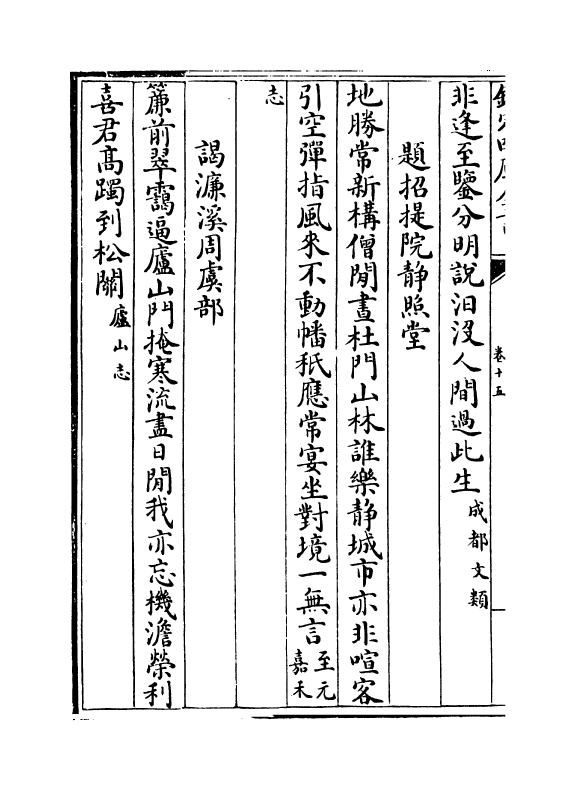 卷十五
非逢至鑒分明說汨没人間過此生成都文類
題招提院静照堂
地勝常新構僧閒晝杜門山林誰樂静城市亦非喧客
引空彈指風來不動幡秖應常宴坐對境一無言至元嘉禾
志
謁濂溪周虞部
簾前翠靄逼廬山門掩寒流盡日閒我亦忘機澹榮利
喜君髙躅到松關廬山志